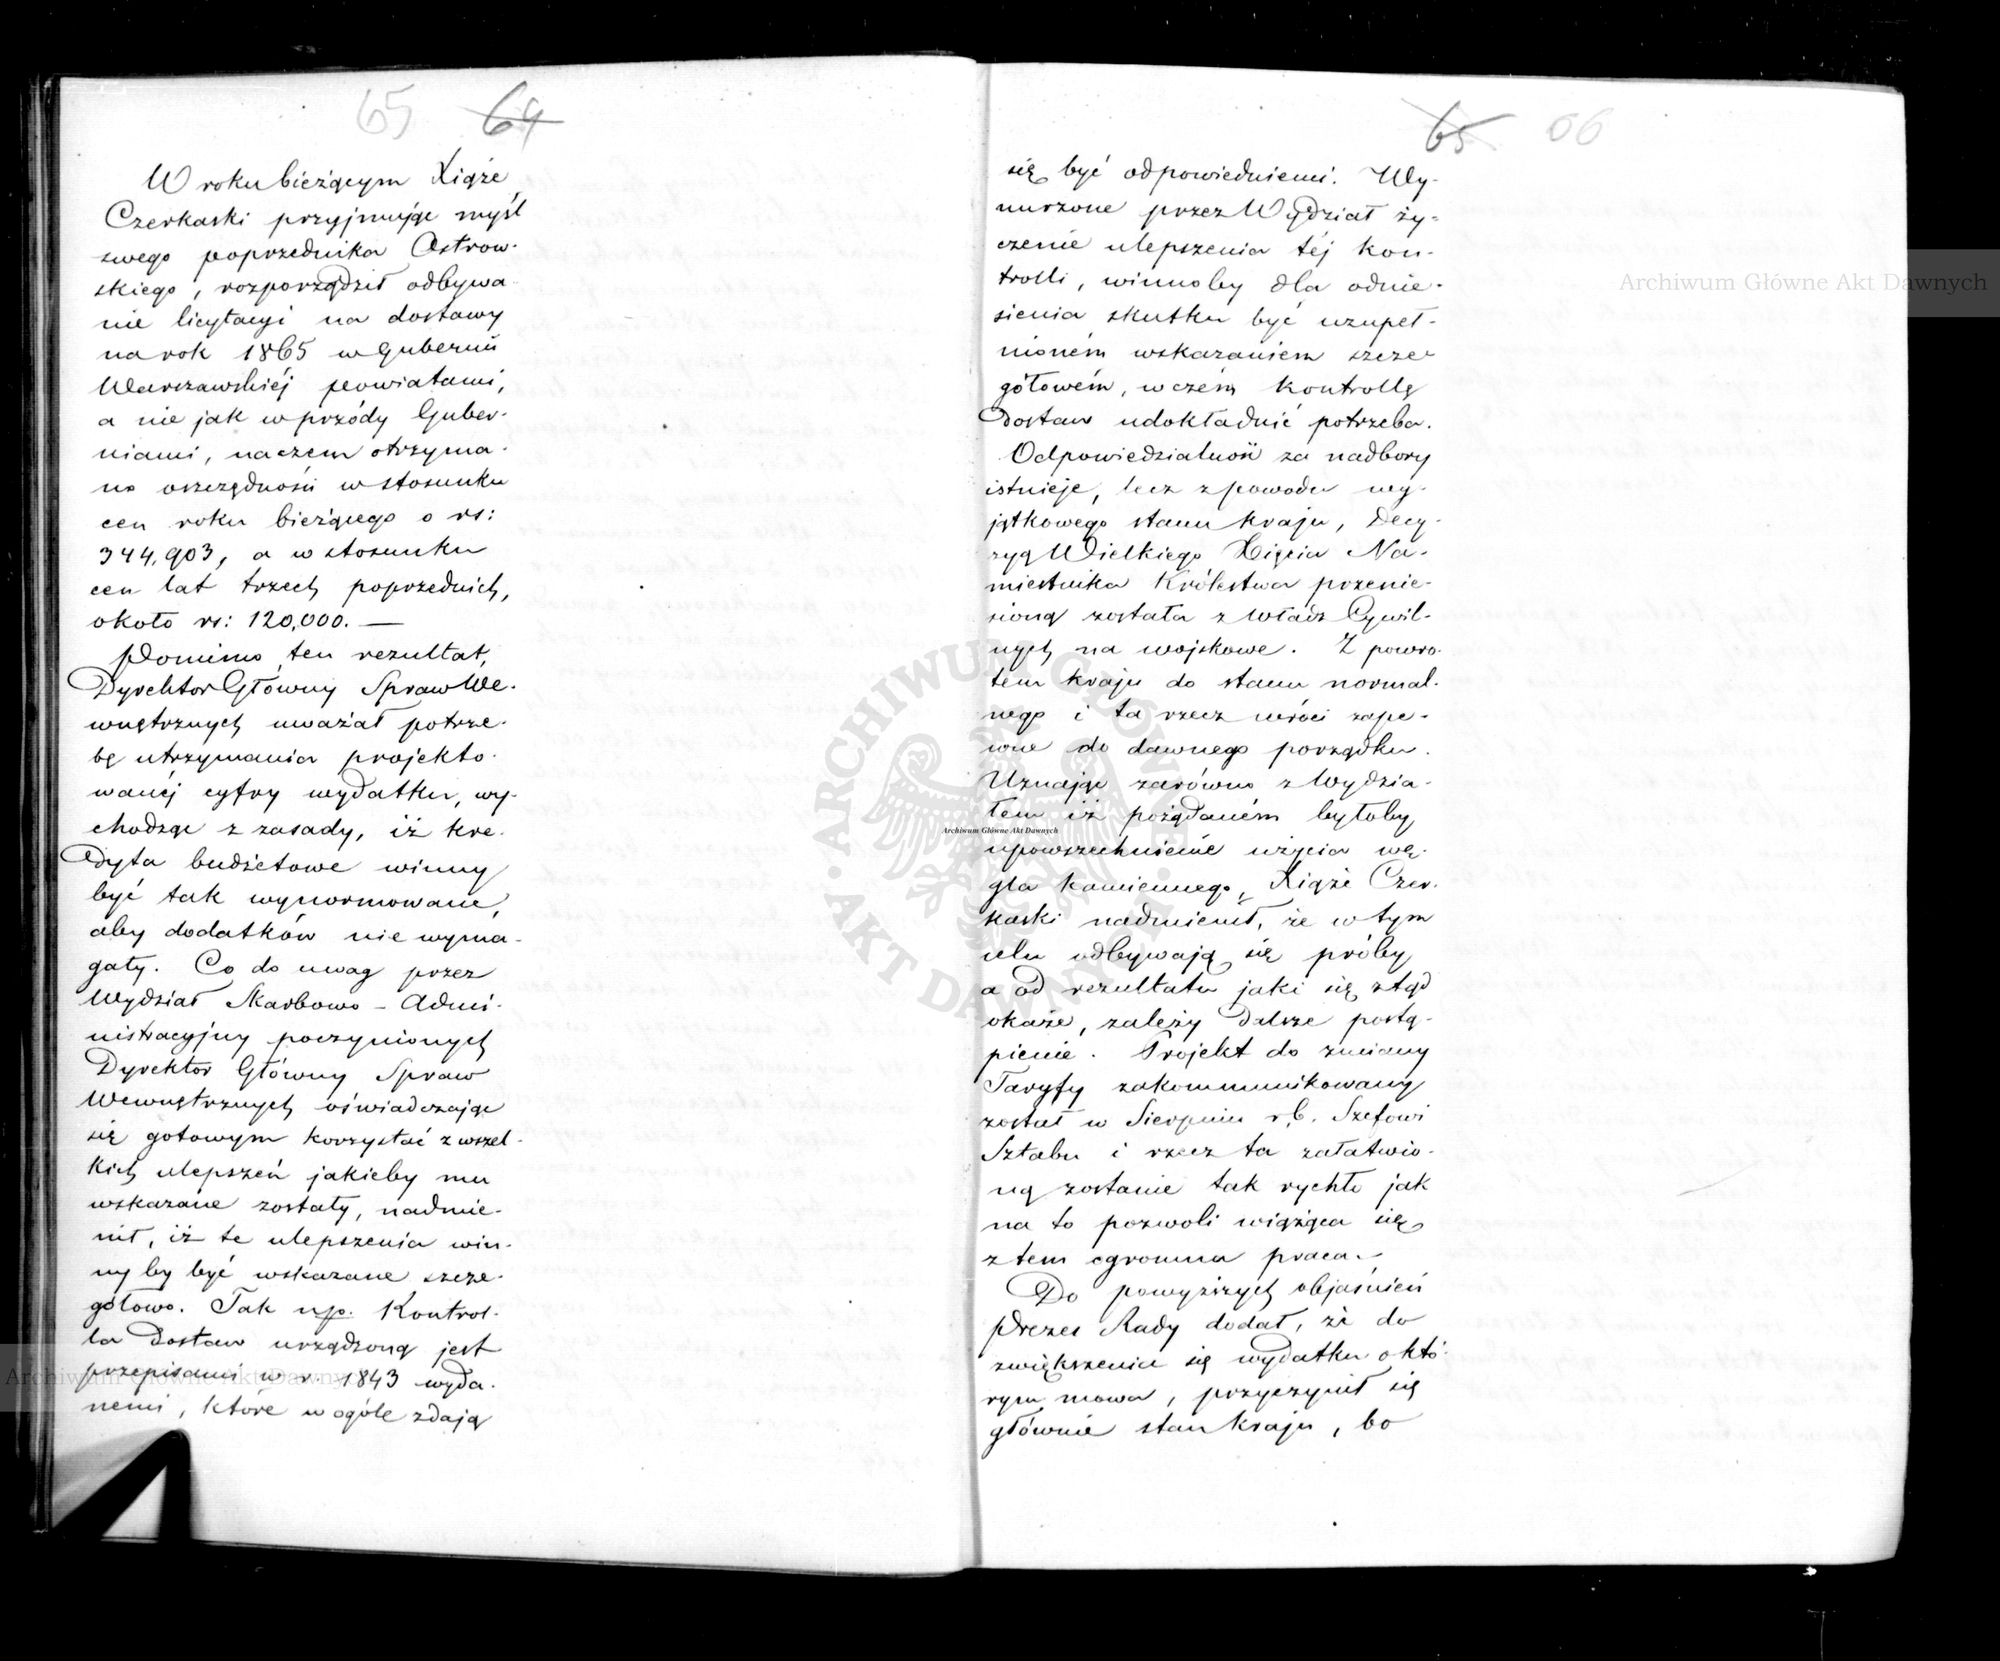 65 64
W roku bieżącym Xiąże
Czerkaski przyjmując myśl
swego poprzednika Ostrow-
skiego, rozporządził odbywa-
nie licytacyi na dostawy
na rok 1865 w Gubernii
Warszawskiéj powiatami,
a nie jak wprzódy Guber-
niami, na czem otrzyma-
no oszczędności w stosunku
cen roku bieżącego o rs:
344,903, a w stosunku
cen lat trzech poprzednich,
około rs: 120,000. —
Pomimo ten rezultat,
Dyrektor Główny Spraw We-
wnętrznych uważał potrze-
bę utrzymania projekto-
wanéj cyfry wydatku, wy-
chodząc z zasady, iż kre-
dyta budżetowe winny
być tak wynormowane,
aby dodatków nie wyma-
gały. Co do uwag przez
Wydział Skarbowo-Admi-
nistracyjny poczynionych
Dyrektor Główny Spraw
Wewnętrznych oświadczając
się gotowym korzystać z wszel-
kich ulepszeń jakieby mu
wskazane zostały, nadmie-
nił, iż te ulepszenia win-
ny by być wskazane szcze-
gółowo. Tak np. Kontrol-
la Dostaw urządzoną jest
przepisami w r. 1843 wyda-
nemi, które w ogóle zdają
65 66
się być odpowiedniemi. Wy-
nurzone przez Wydział ży-
czenie ulepszenia téj kon-
trolli, winnoby dla odnie-
sienia skutku być uzupeł-
nioném wskazaniem szcze-
gółowém, w czém kontrollę
Dostaw udokładnić potrzeba.
Odpowiedzialność za nadbory
istnieje, lecz z powodu wy-
jątkowego stanu kraju, Decy-
zyą Wielkiego Xięcia Na-
miestnika Królestwa przenie-
sioną została z Władz Cywil-
nych na wojskowe. Z powro-
tem kraju do stanu normal-
nego i ta rzecz wróci zape-
wne do dawnego porządku.
Uznając zarówno z Wydzia-
łem iż pożądaném byłoby
upowszechnienie użycia wę-
gla kamiennego, Xiąże Czer-
kaski nadmienił, że w tym
celu odbywają się próby
a od rezultatu jaki się ztąd
okaże, zależy Dalsze postą-
pienie. Projekt do zmiany
Taryfy zakommunikowany
został w Sierpniu r.b. Szefowi
Sztabu i rzecz ta załatwio-
ną zostanie tak rychło jak
na to pozwoli wiążąca się
z tem ogromna praca.
Do powyższych objaśnień
Prezes Rady dodał, że do
zwiększenia się wydatku o któ-
rym mowa, przyczynił się
głównie stan kraju, bo
Archiwum Główne Akt Dawnych
ARCHIWUM GŁÓWNE AKT DAWNYCH
Archiwum Główne Akt Dawnych
Archiwum Główne Akt Dawnych